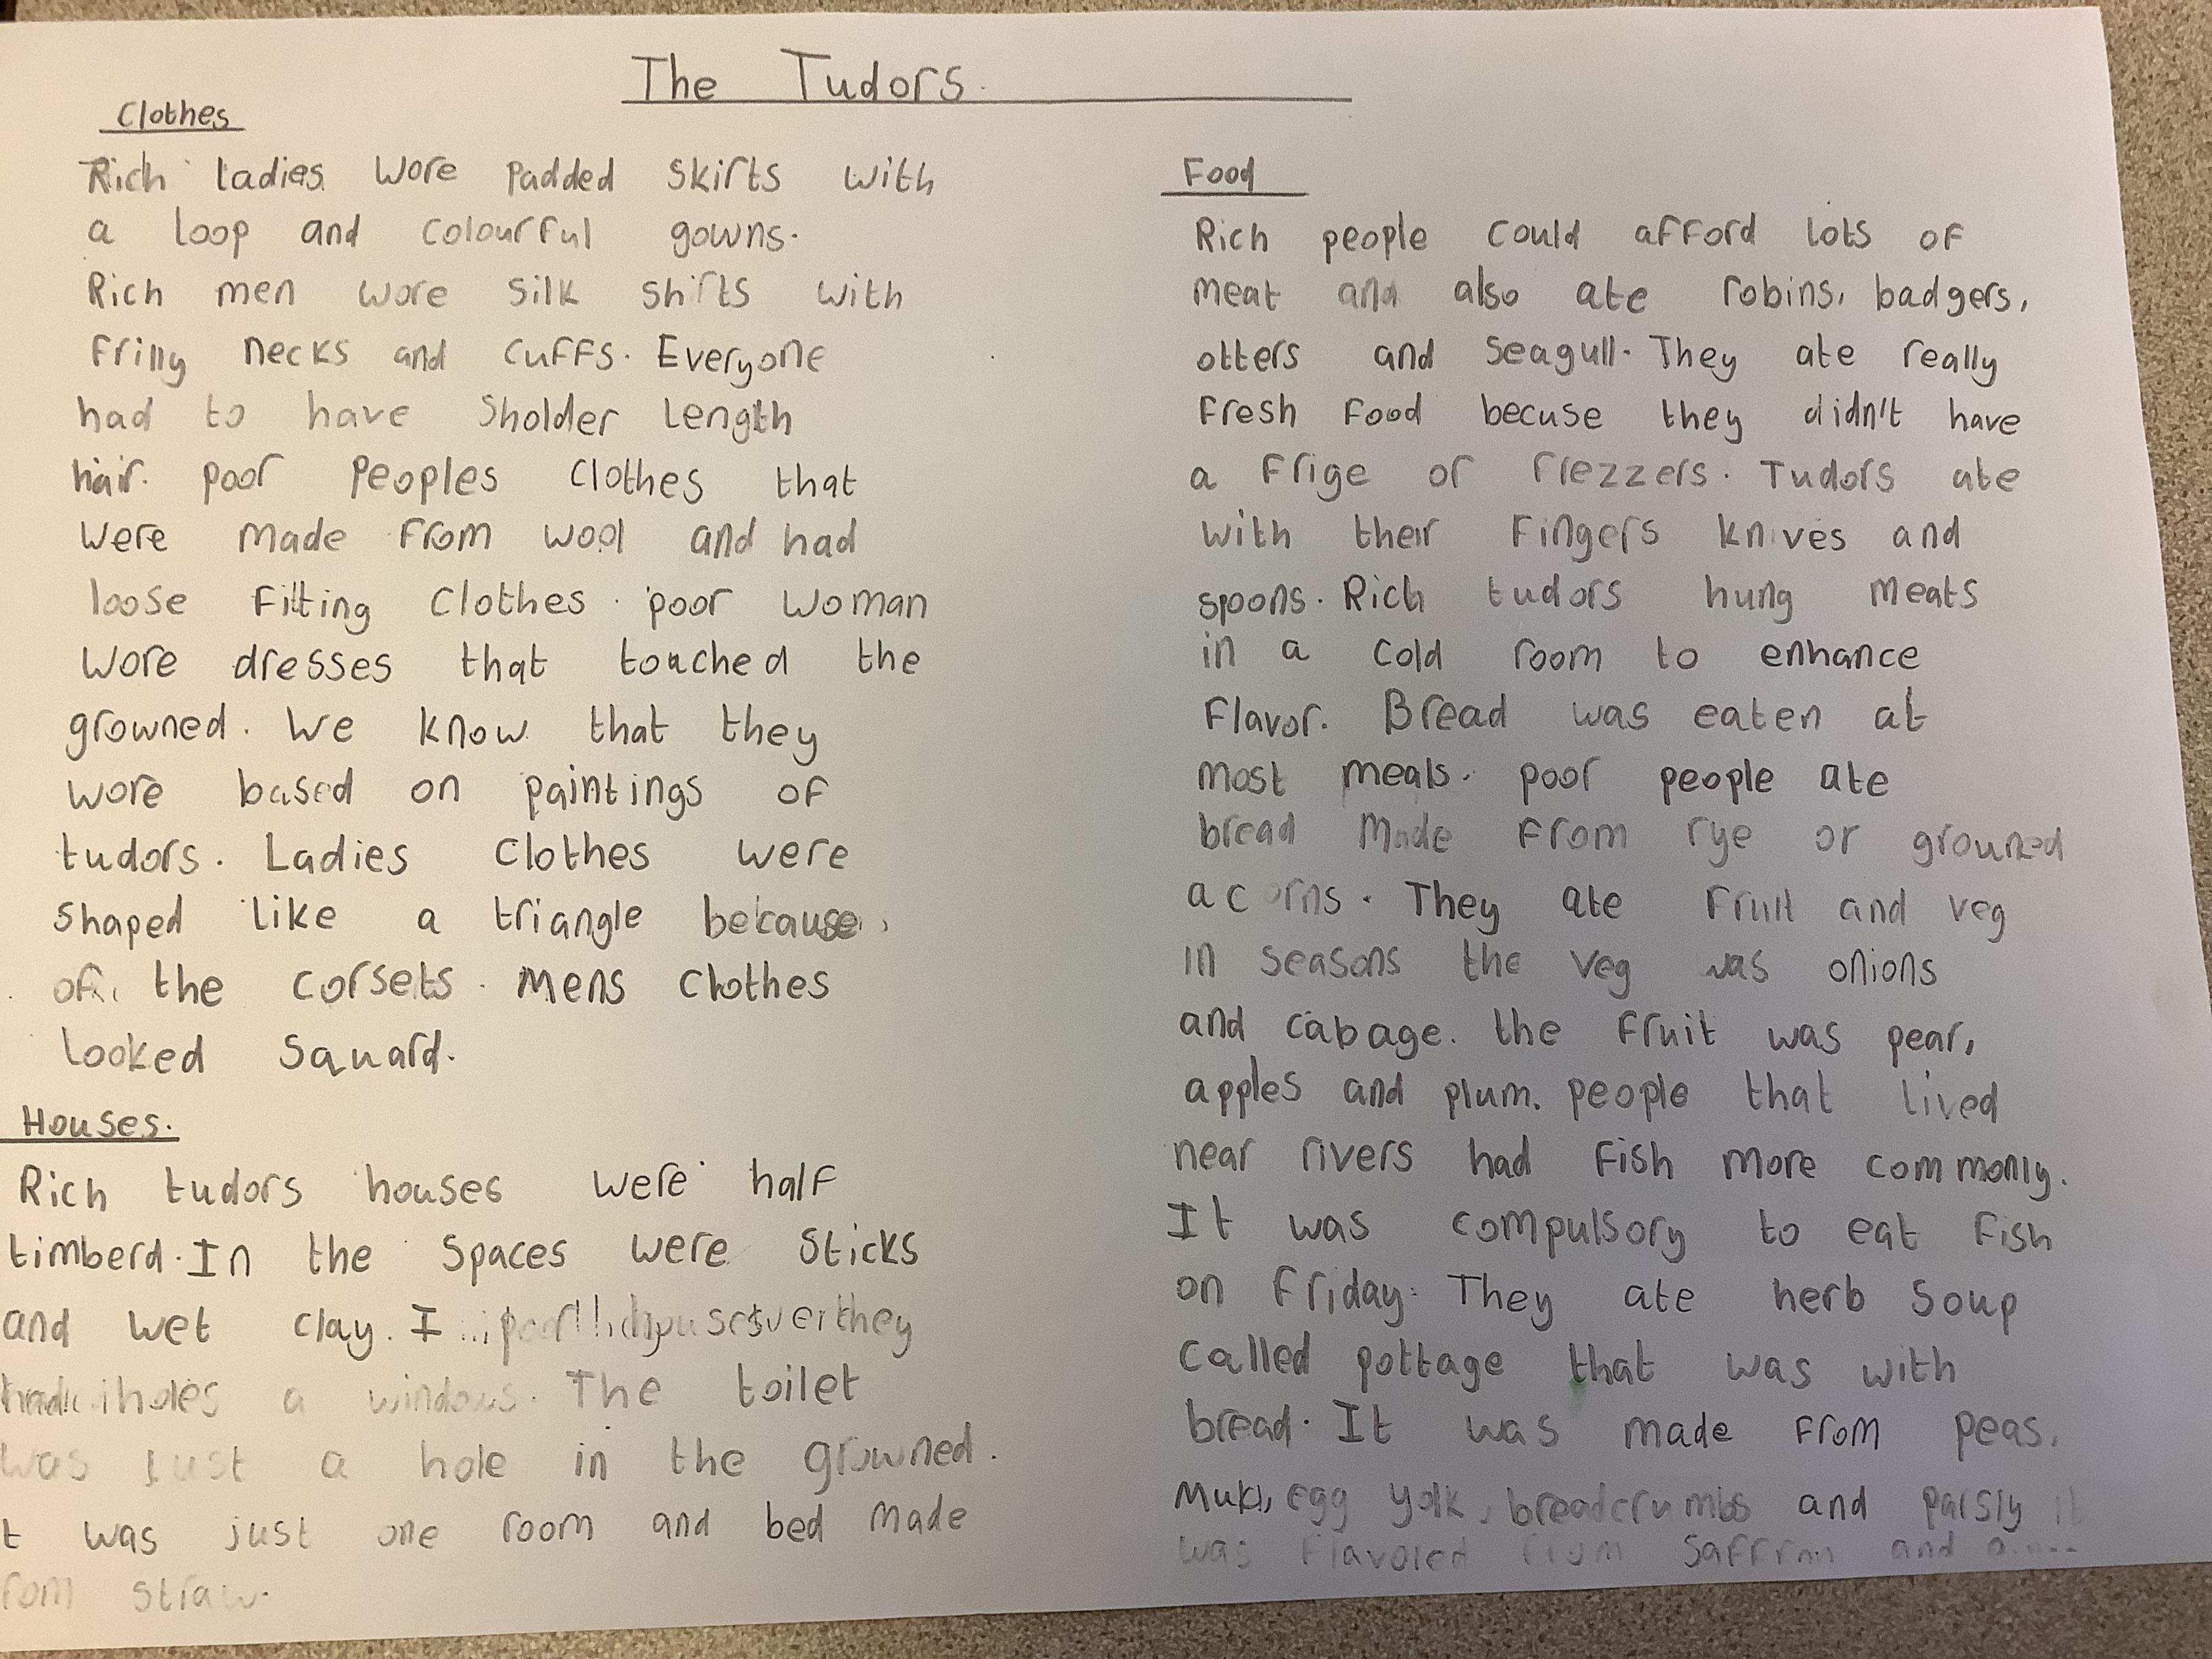 The Tudors.
Clothes
Rich ladies wore padded skirts with
a loop and colourful gowns.
Rich men wore silk shirts with
frilly necks and cuffs. Everyone
had to have sholder length
hair. poor peoples clothes that
were made from wool and had
loose fitting clothes. poor woman
wore dresses that touched the
growned. We know that they
wore based on paintings of
tudors. Ladies clothes were
shaped like a triangle because
of the corsets. Mens clothes
looked squard.
Houses.
Rich tudors houses were half
timberd. In the spaces were sticks
and wet clay. I they
holes a windows. The toilet
was just a hole in the growned.
t was just one room and bed made
rom straw.
Food
Rich people could afford lots of
meat and also ate robins, badgers,
otters and seagull. They ate really
fresh food becuse they didn't have
a frige or frezzers. Tudors ate
with their fingers knives and
spoons. Rich tudors hung meats
in a cold room to enhance
flavor. Bread was eaten at
most meals. poor people ate
bread made from rye or grouned
acorns. They ate fruit and veg
in seasons the veg was onions
and cabage. the fruit was pear,
apples and plum. people that lived
near rivers had fish more commonly.
It was compulsory to eat fish
on friday. They ate herb soup
called pottage that was with
bread. It was made from peas.
egg yolk, breadcrumbs and parsly it
was flavored from saffron and